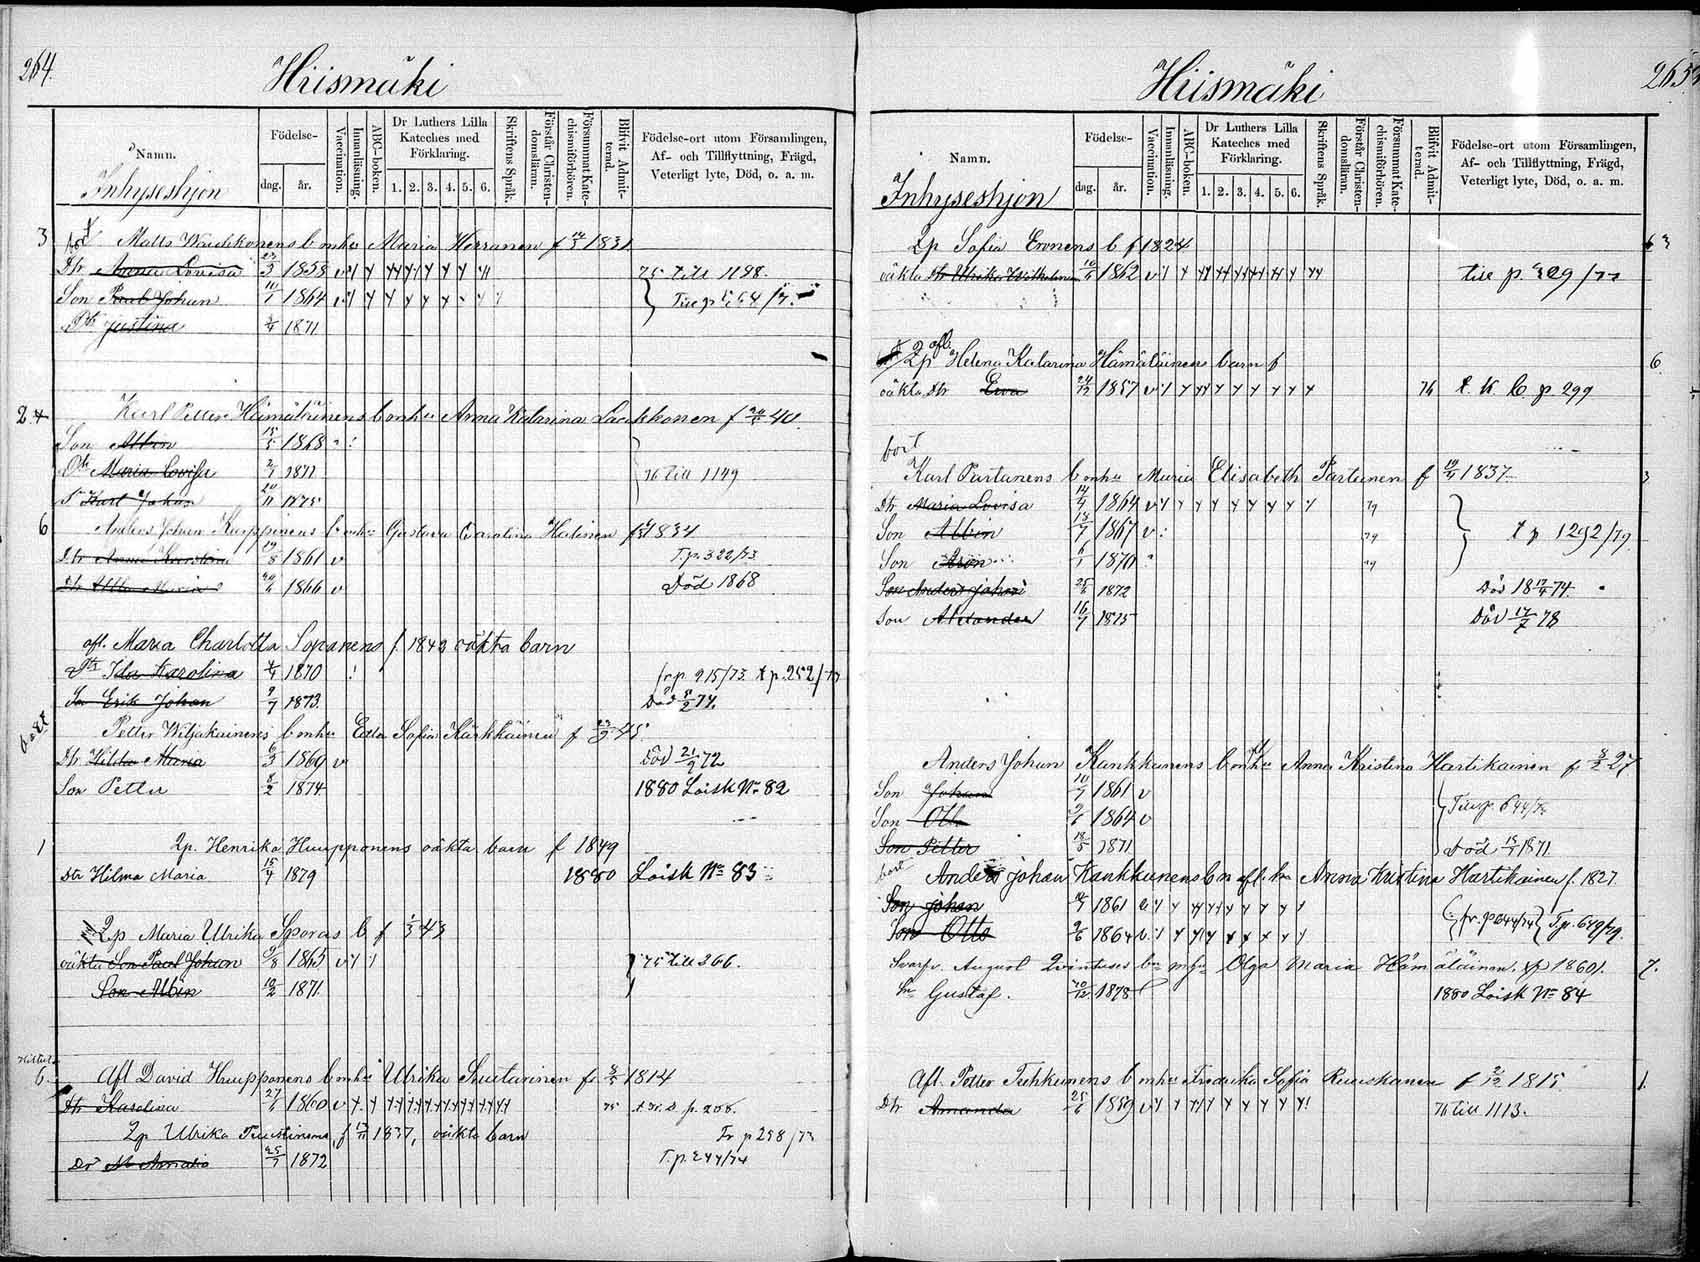 264.
Hiismäki
Namn.
Inhyseshjon
Födelse-
dag. år.
Vaccination.
Innanläsning.
ABC-boken.
Dr Luthers Lilla Kateches med Förklaring.
1. 2. 3. 4. 5. 6.
Skriftens Språk.
Förstår Christendomsläran.
Försummat Katechismiförhören.
Blifvit Admitterad.
Födelse-ort utom Församlingen, Af- och Tillflyttning, Frägd, Veterligt lyte, Död, o. a. m.
3 Matts b m hu Maria Herranen f 1831
Dtr Anna Lovisa 23/3 1858 v 75 till 1198.
Son Paul Johan 10/1 1864 v
Dtr Justina 1871
2 Karl Petter Hämäläinens b m hu Anna Katarina f 40.
Son Albin 15/5 1868
Dtr Maria Lovisa 1871 76 till 1149
S. Karl Johan 1875
6 Anders Johan Kuppinens b m hu Gustava Carolina f 1834
Dtr 1861 v T. p. 322/73
Dtr Maria 1866 v Död 1868
afl. Maria Charlotta Sopanens f. 1849 oäkta barn
Dtr Ida Karolina 1870 fr p. 915/73 t p. 252/77
Son Erik Johan 9/7 1873. Död 8/2 74.
Petter Wiljakainens b m hu Edla Sofia Kärkkäinen f 45
Dtr Hilda Maria 6/3 1869 v Död 21/9 72
Son Petter 8/2 1874 1880 Loisk No 82
1 Qp. Henrika Huupponens oäkta barn f 1849
Dtr Hilma Maria 15/7 1879 1880 Loisk No 83
Qp Maria Ulrika b f 1/3 43
oäkta Son Paul Johan 9/8 1865 v 75 till 266.
Son Albin 12/2 1871
6. Afl David Huupponens b m hu Ulrika Suutarinen f 1814
Dtr Karolina 27/6 1860 v 75
Qp Ulrika f 1837, oäkta barn Fr p 258/73
Dr 25/7 1872 T. p. 244/74
265
Hiismäki
Namn.
Inhyseshjon
Födelse-
dag. år.
Vaccination.
Innanläsning.
ABC-boken.
Dr Luthers Lilla Kateches med Förklaring.
1. 2. 3. 4. 5. 6.
Skriftens Språk.
Förstår Christendomsläran.
Försummat Katechismiförhören.
Blifvit Admitterad.
Födelse-ort utom Församlingen, Af- och Tillflyttning, Frägd, Veterligt lyte, Död, o. a. m.
Qp Sofia Eronens b f 1824
oäkta Dtr Ulrika Wilhelmina 1862 v till p 329/77
Qp Helena Katarina Hämäläinens barn f 6
oäkta Dtr Eva 24/12 1857 v 76 t k b p 299
bort
Karl Partanens b m hu Maria Elisabeth Partanen f 1837 3
Dtr Maria Lovisa 14/4 1864 v
Son Albin 1867 v
Son Aron 6/1 1870 t p 1292/79.
Son Anders Johan 25/6 1872 Död 74.
Son Alexander 16/7 1875 Död 17/7 78
Anders Johan Kankkunens b m hu Anna Kristina Hartikainen f 8/2 27
Son Johan 10/7 1861 v
Son Otto 9/6 1864 v
Son Petter 1871 Död 1871
bort Anders Johan Kankkunens bn afl. hu Anna Kristina Hartikainen f. 1827.
Son Johan 1861
Son Otto 9/6 1864 v fr. p 644/74 T p. 649/79.
August bn m hu Olga Maria Hämäläinen f 1860. 7.
Sn Gustaf. 1878 1880 Loisk No 84
Afl. Petter Tuhkunens b m hu Fredrika Sofia Ruuskanen f 1815 1.
Dtr Amanda 25/6 1859 v 76 till 1113.